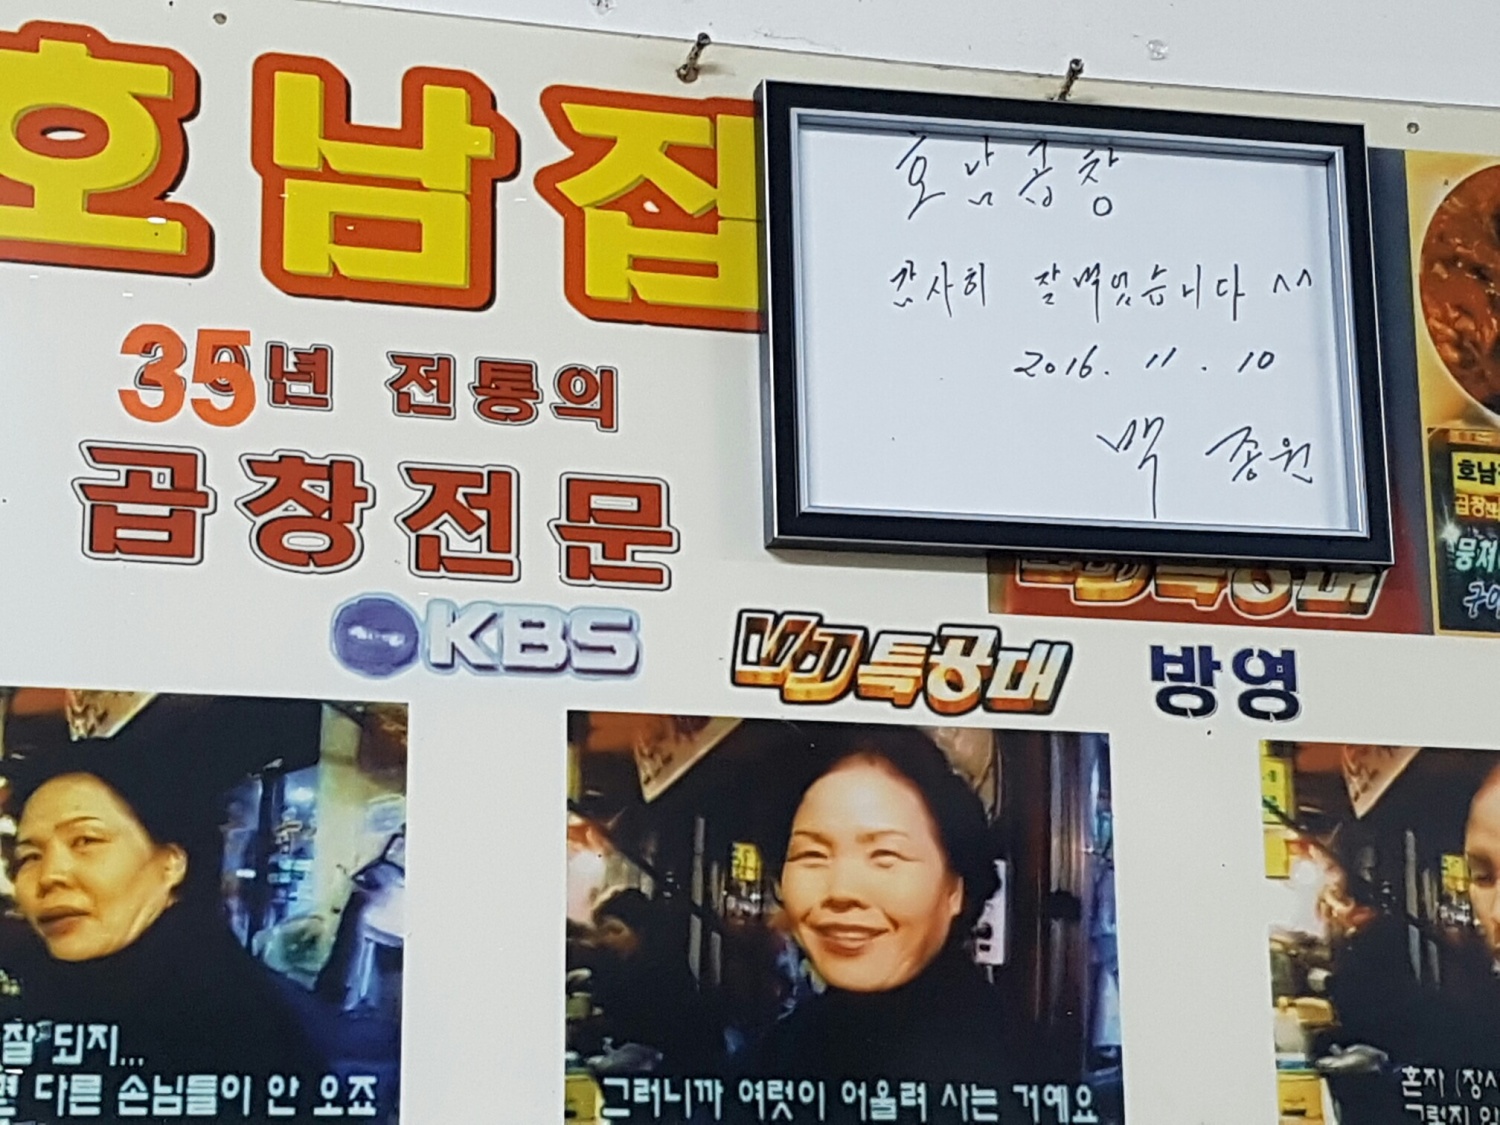 호남집
35년 전통의
곱창전문
KBS VJ특공대 방영
호남곱창
감사히 잘먹었습니다 ^^
2016. 11. 10
백종원
VJ특공대
호남
곱창전
뭉쳐
구이
잘 되지...
다른 손님들이 안 오죠
그러니까 여럿이 어울려 사는 거예요
혼자 (장사
그렇지 않